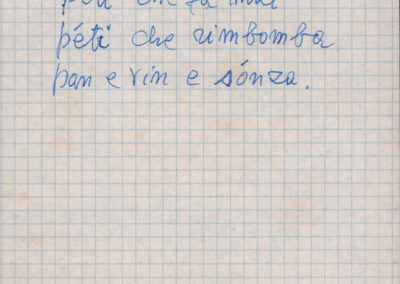 che fa
péti che rimbomba
pan e vin e sónza.